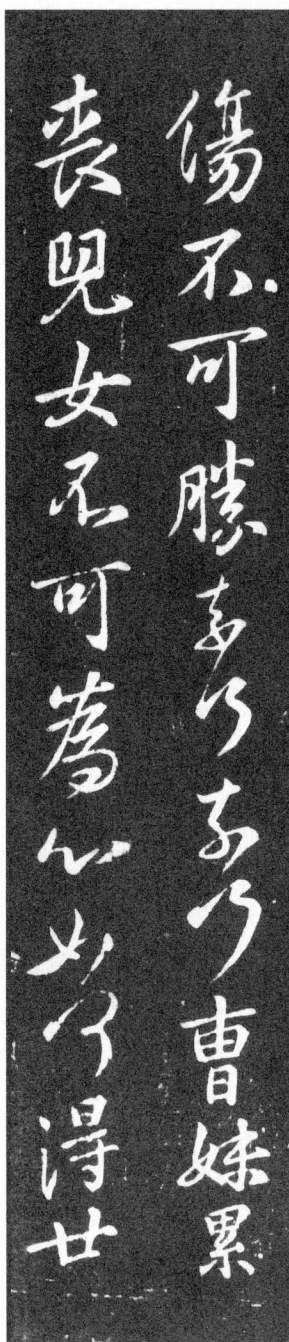 傷不可勝奈何奈何曹妹累
喪兒女不可為心如何得廿